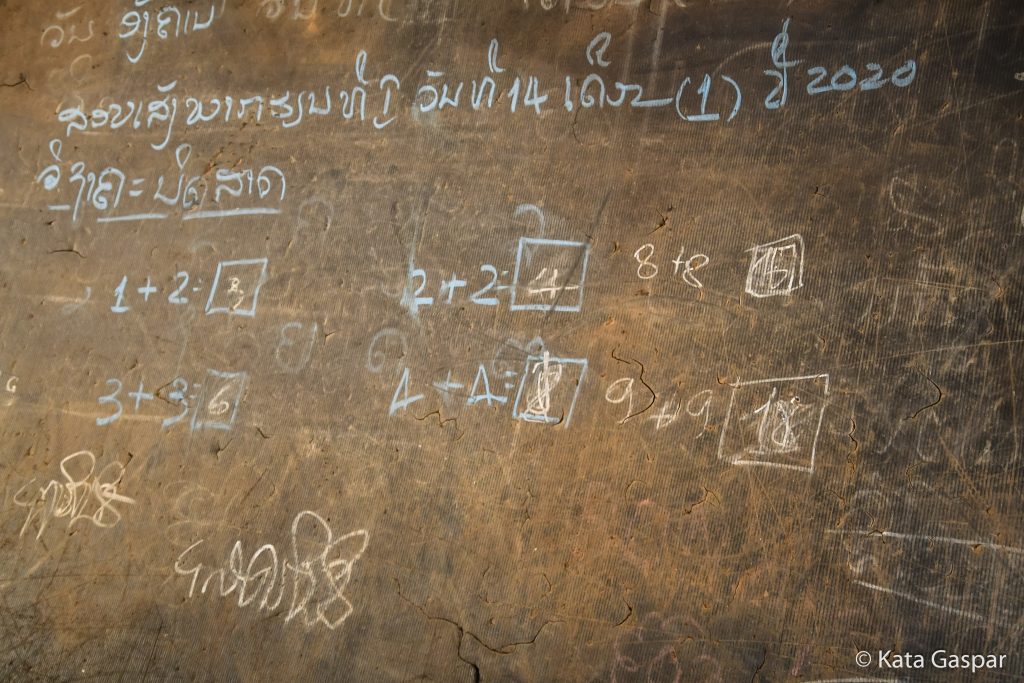 ວັນ ອັງຄານ ວັນທີ
ສອບເສັງພາກຮຽນທີ I ວັນທີ 14 ເດືອນ (1) ປີ 2020
ວິຊາຄະນິດສາດ
1+2=3 2+2=4 8+8 16
3+3=6 4+4=8 9+9 18
© Kata Gaspar